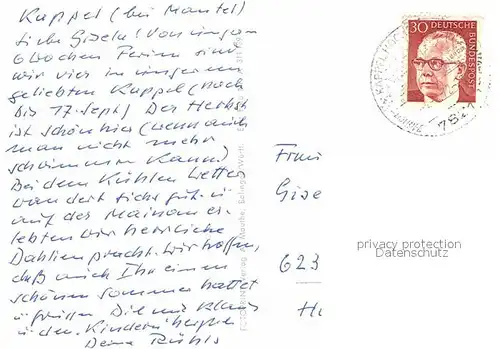 Kappel (bei Mantel)
Liebe Gisela! Von unseren
6 Wochen Ferien sind
wir vier in unserem
geliebten Kappel (noch
bis 17. Sept.) Der Herbst
ist schön hier (wenn auch
man nicht mehr
schwimmen kann.)
Bei dem kühlen Wetter
wandert sichs gut u.
auf der Mainau er-
lebten wir herrliche
Dahlienpracht. Wir hoffen,
daß auch Ihr einen
schönen Sommer hattet
u. grüssen Dich mit Klaus
u. den Kindern herzlich
Deine
30 DEUTSCHE BUNDESPOST
KAPPEL
7821
Frau
Gise
623
privacy protection
Datenschutz